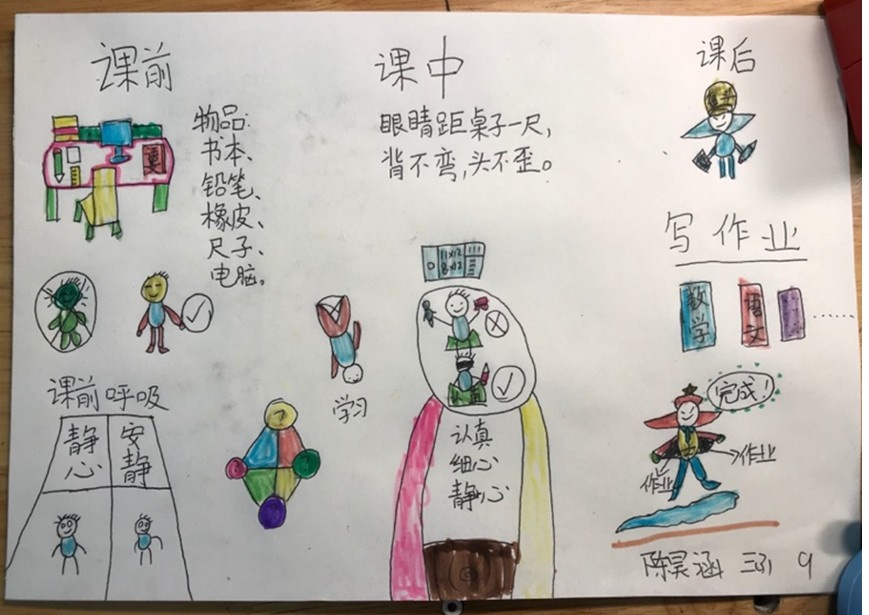 课前
物品:
书本、
铅笔、
橡皮、
尺子、
电脑。
课前呼吸
静心
安静
学习
课中
眼睛距桌子一尺，
背不弯，头不歪。
认真
细心
静心
课后
写作业
数学
语文
……
完成！
作业
作业
陈昊涵 三3 9